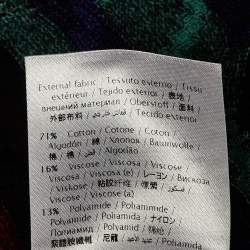 External fabric / Tessuto esterno / Tissu
extérieur / Tejido exterior / 表地 /
внешний материал / Oberstoff / 面料 /
外部布料 / قماش خارجي / Tecido exterior
71% Cotton / Cotone / Coton /
Algodón / 綿 / Хлопок / Baumwolle /
棉 / 棉 / قطن / Algodão
16% Viscose / Viscosa / Viscose /
Viscosa / Viscosa (e) / レーヨン / Вискоза
/ Viskose / 粘胶纤维 / 嫘縈 /
Viscose / Viscosa (a)
13% Polyamide / Poliammide /
Polyamide / Poliamida / ナイロン /
Полиамид / Polyamid / 锦纶 /
聚醯胺纖維 / 尼龍 / Poliamida